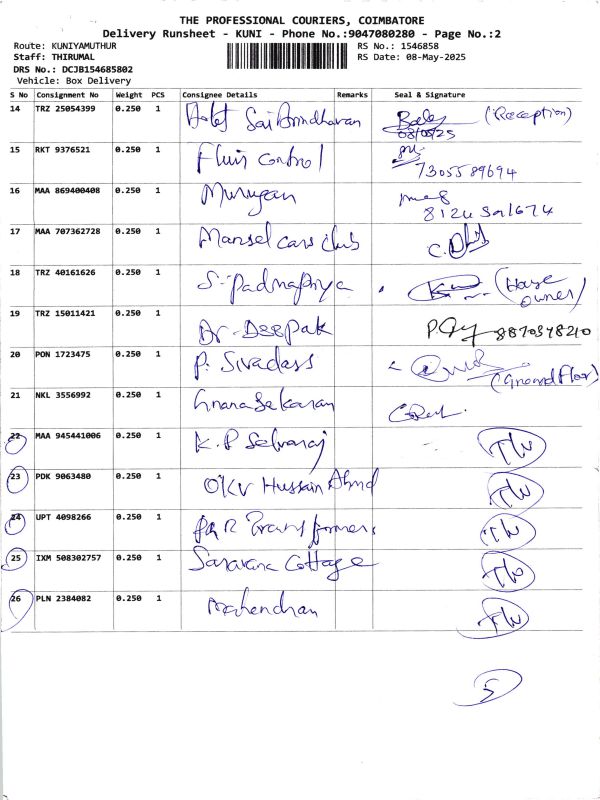 THE PROFESSIONAL COURIERS, COIMBATORE
Delivery Runsheet - KUNI - Phone No.:9047080280 - Page No.:2
Route: KUNIYAMUTHUR
RS No.: 1546858
Staff: THIRUMAL
RS Date: 08-May-2025
DRS No.: DCJB154685802
Vehicle: Box Delivery
S No Consignment No Weight PCS Consignee Details Remarks Seal & Signature
14 TRZ 25054399 0.250 1 (Reception)
08/05/25
15 RKT 9376521 0.250 1 Fluid Control
7305589694
16 MAA 869400408 0.250 1 Murugan
17 MAA 707362728 0.250 1 Mansel cars club
18 TRZ 40161626 0.250 1 S. Padmapriya (House owner)
19 TRZ 15011421 0.250 1 Dr-Deepak 8870378210
20 PON 1723475 0.250 1 P. Sivadass
(Ground Floor)
21 NKL 3556992 0.250 1 Gnanasekaran
22 MAA 945441006 0.250 1 K.P Selvaraj
23 PDK 9063480 0.250 1 OKV Hussain Ahmd
24 UPT 4098266 0.250 1 Transformers
25 IXM 508302757 0.250 1 Saravana Cottage
26 PLN 2384082 0.250 1 Mahendran
5